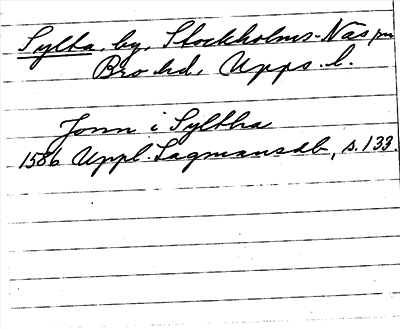 Sylta, by, Stockholms-Näs sn
Bro hd, Upps. l.
Jonn i Syltha
1586 Uppl. Lagmansdb, s. 133.